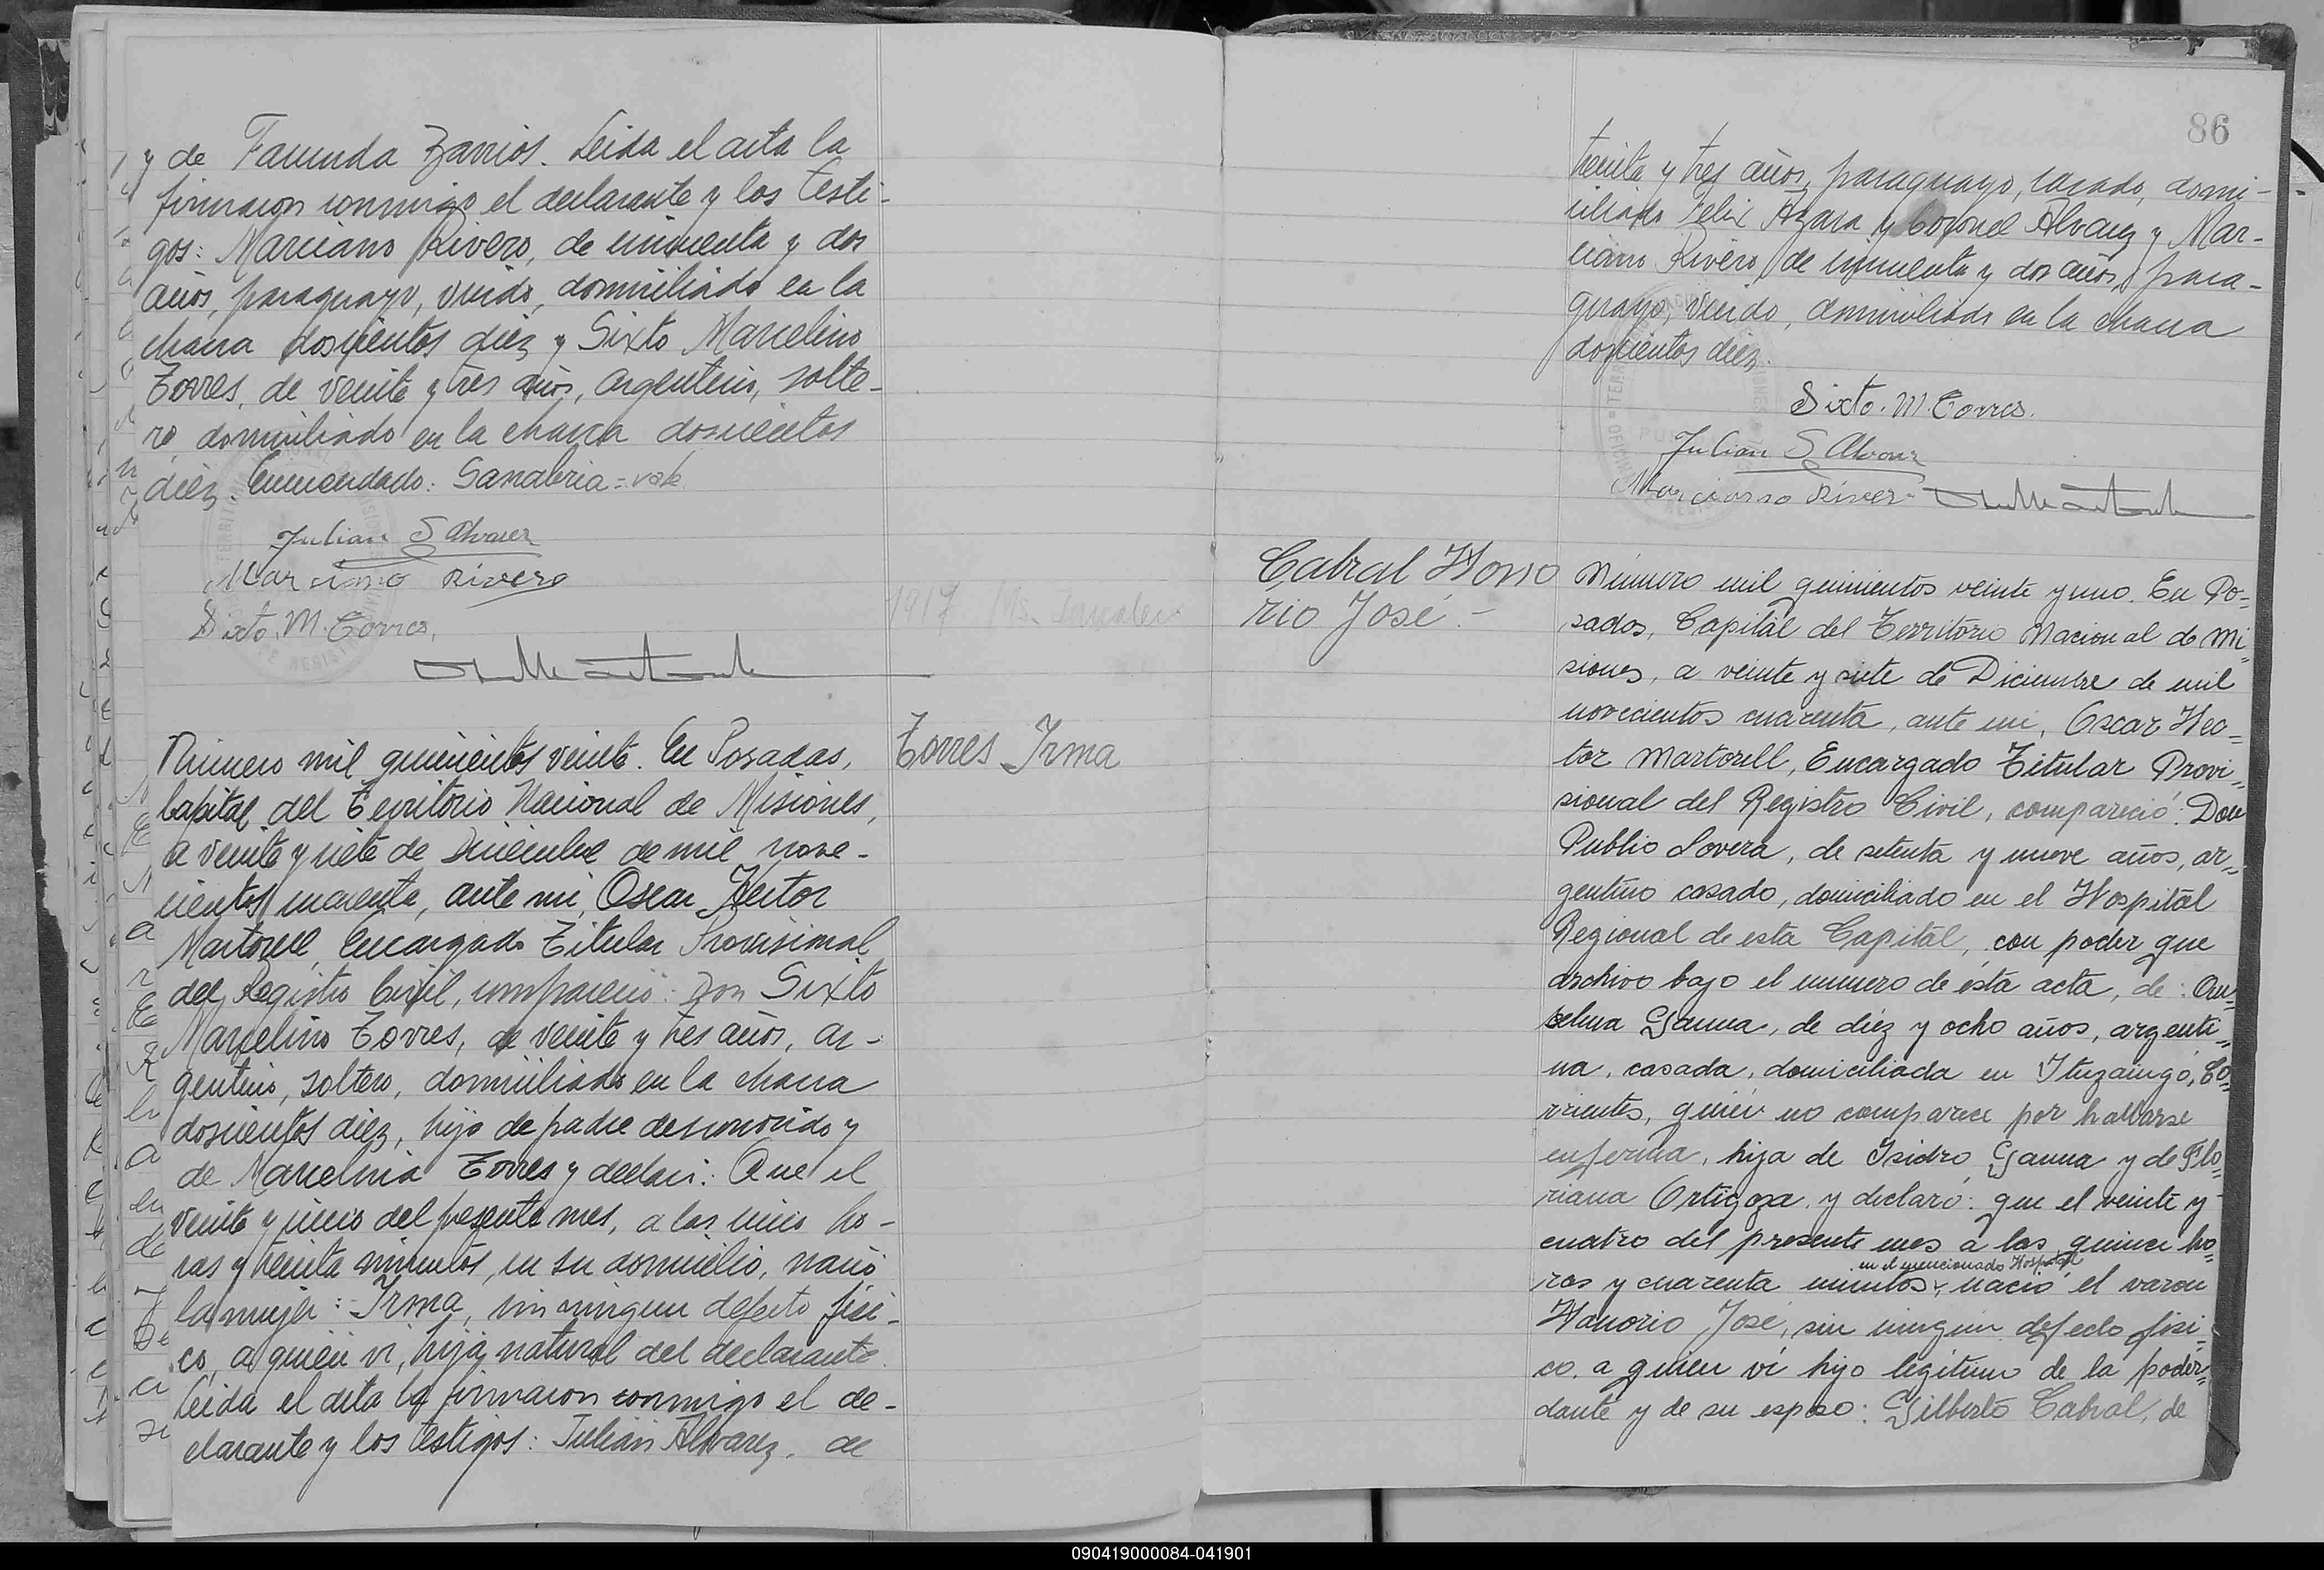 y de Facunda Barrios. Leida el acta la
firmaron conmigo el declarante y los testi-
gos: Marciano Rivero, de cincuenta y dos
años, paraguayo, viudo, domiciliado en la
chacra doscientos diez y Sixto Marcelino
Torres, de veinte y tres años, argentino, solte-
ro domiciliado en la chacra doscientos
diez. Enmendado: Sanabria = vale
Julian S Alvarez
Marciano Rivero
Sixto. M. Torres.
1917
Numero mil quinientos veinte. En Posadas,
Capital del Territorio Nacional de Misiones,
a veinte y siete de Diciembre de mil nove-
cientos cuarenta, ante mi, Oscar Hector
Martorell, Encargado Titular Provisional
del Registro Civil, compareció: Don Sixto
Marcelino Torres, de veinte y tres años, ar-
gentino, soltero, domiciliado en la chacra
doscientos diez, hijo de padre desconocido y
de Marcelina Torres y declaró: Que el
veinte y cinco del presente mes, a las cinco ho-
ras y treinta minutos, en su domicilio, nació
la mujer: Irma, sin ningun defecto físi-
co, a quién ví, hija natural del declarante.
Leida el acta la firmaron conmigo el de-
clarante y los testigos: Julián Alvarez, de
Torres Irma
86
treinta y tres años, paraguayo, casado, domi-
ciliado Felix Azara y Coronel Alvarez y Mar-
ciano Rivero, de cincuenta y dos años, para-
guayo, viudo, domiciliado en la chacra
doscientos diez.
Sixto. M. Torres.
Julian S Alvarez
Marciano Rivero
Cabral Hono
rio José. -
Número mil quinientos veinte y uno. En Po=
sadas, Capital del Territorio Nacional de Mi=
siones, a veinte y siete de Diciembre de mil
novecientos cuarenta, ante mi, Oscar Hec=
tor Martorell, Encargado Titular Provi=
sional del Registro Civil, compareció: Don
Publio Lovera, de setenta y nueve años, ar=
gentino casado, domiciliado en el Hospital
Regional de esta Capital, con poder que
archivo bajo el número de ésta acta, de: An=
selma Gauna, de diez y ocho años, argenti=
na, casada, domiciliada en Ituzaingó, Co=
rrientes, quién no comparece por hallarse
enferma, hija de Isidro Gauna y de Flo=
riana Ortigoza, y declaró: que el veinte y
cuatro del presente mes a las quince ho=
en el mencionado Hospital
ras y cuarenta minutos, nació el varon
Honorio José, sin ningún defecto físi=
co, a quien ví hijo legítimo de la poder=
dante y de su esposo: Gilberto Cabral, de
090419000084-041901